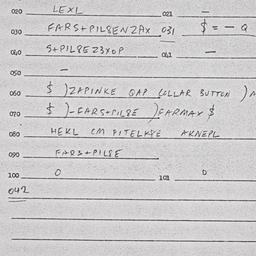 020 LEXL 021 –
030 FARS+PILSENZAX 031 $ = – Q
040 S+PILSEZ3XOP 041 –
050 –
060 $ )ZAPINKE GAP COLLAR BUTTON )A
070 $ )-FARS+PILSE )FARMAX $
080 HEKL CM PITELKSE AKNEPL
090 FARS+PILSE
100 0 101 0
042